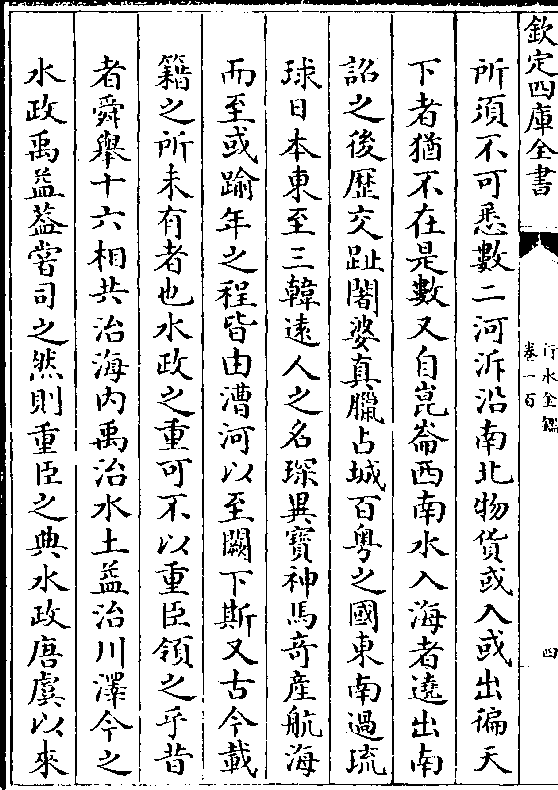 欽定四庫全書
行水金鑑
卷一百
四
所須不可悉數二河泝沿南北物貨或入或出徧天
下者猶不在是數又自崑崙西南水入海者遶出南
詔之後歴交趾闍婆真臘占城百粤之國東南過琉
球日本東至三韓遠人之名琛異寳神馬竒産航海
而至或踰年之程皆由漕河以至闕下斯又古今載
籍之所未有者也水政之重可不以重臣領之乎昔
者舜舉十六相共治海内禹治水土益治川澤今之
水政禹益葢嘗司之然則重臣之典水政唐虞以來